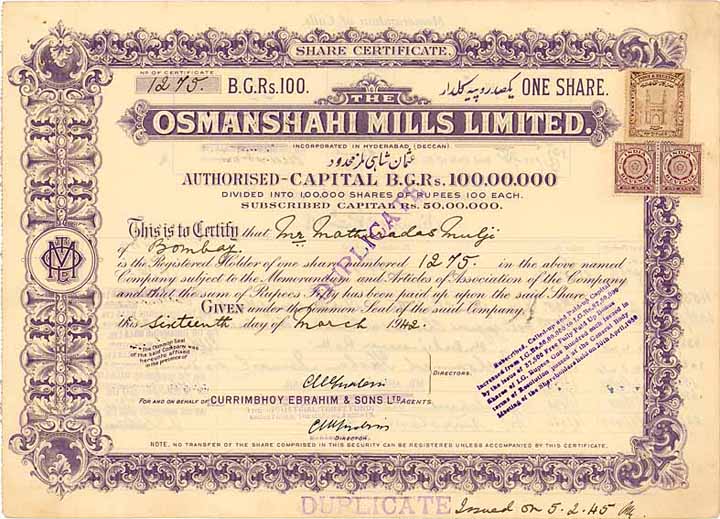 SHARE CERTIFICATE.
No OF CERTIFICATE
1275.
B.G.Rs.100.
یکصد روپیہ کلدار
ONE SHARE.
THE
OSMANSHAHI MILLS LIMITED.
INCORPORATED IN HYDERABAD (DECCAN)
عثمان شاہی ملز محدود
AUTHORISED-CAPITAL B.G.Rs. 100,00,000
DIVIDED INTO 1,00,000 SHARES OF RUPEES 100 EACH.
SUBSCRIBED CAPITAL Rs. 50,00,000.
This is to Certify that Mr Mathuradas Mulji
of Bombay
is the Registered Holder of one share numbered 1275 in the above named
Company subject to the Memorandum and Articles of Association of the Company
and that the sum of Rupees Fifty has been paid up upon the said Share
GIVEN under the Common Seal of the said Company
this Sixteenth day of March 1942.
DUPLICATE
The Common Seal
of the said Company was
hereunto affixed
in the presence of
Subscribed, Called-up and Paid-up Capital
increased from I.G. Rs.
by the issue of 37,500 Fully Paid Up Bonus
Shares of I.G. Rupees One Hundred each issued in
terms of Resolution passed at the General Body
Meeting of the Shareholders held on
DIRECTORS.
FOR AND ON BEHALF OF CURRIMBHOY EBRAHIM & SONS LTD AGENTS.
THE INDUSTRIAL TRUST FUND
DIRECTOR.
NOTE. NO TRANSFER OF THE SHARE COMPRISED IN THIS SECURITY CAN BE REGISTERED UNLESS ACCOMPANIED BY THIS CERTIFICATE.
DUPLICATE
Issued on 5.2.45
INDIA
INDIA